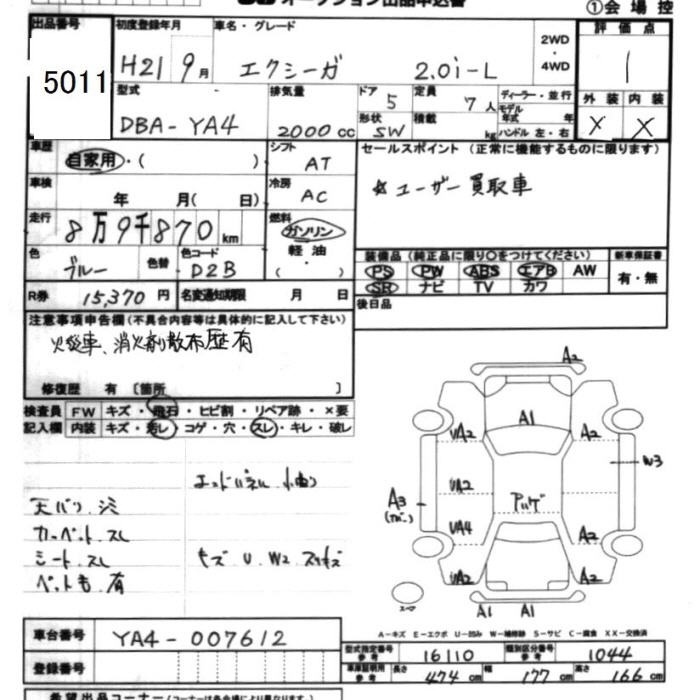 オークション出品申込書
①会場控
出品番号 初度登録年月 車名・グレード 2WD・4WD 評価点
5011 H21 9月 エクシーガ 2.0i-L 1
型式 排気量 ドア 5 定員 7人 ディーラー・並行 外装 内装
DBA-YA4 2000cc 形状 SW 積載 kg モデル年式 年 ハンドル 左・右 X X
車歴 自家用・( ) シフト AT セールスポイント(正常に機能するものに限ります)
車検 年 月( 日) 冷房 AC ☆ユーザー買取車
走行 8万9千870km 燃料 ガソリン 軽油 ・( )
色 ブルー 色替 色コード D2B 装備品(純正品に限り○をつけてください) 新車保証書
PS PW ABS エアB AW 有・無
SR ナビ TV カワ
R券 15,370円 名変通知期限 月 日 後日品
注意事項申告欄(不具合内容等は具体的に記入して下さい)
火災車、消火剤散布歴有
修復歴 有 〔箇所 〕
検査員 FW キズ・飛石・ヒビ割・リペア跡・×要
記入欄 内装 キズ・汚レ・コゲ・穴・スレ・キレ・破レ
エンドパネル 小曲り
天バリ シミ
カーペット スレ
シート スレ キズ U W2 スリキズ
ペット毛 有
A2
A1
UA2 A2
W3
UA2
A3 アルゲ
UA4
A2
UA2 A2
スペア
A1 A1
A-キズ E-エクボ U-凹み W-補修跡 S-サビ C-腐食 XX-交換済
車台番号 YA4-007612 型式指定番号 参考 16110 類別区分番号 参考 1044
登録番号 車庫証明用 参考 長さ 474cm 幅 177cm 高さ 166cm
希望出品コーナー(コーナーは各会場により異なります)